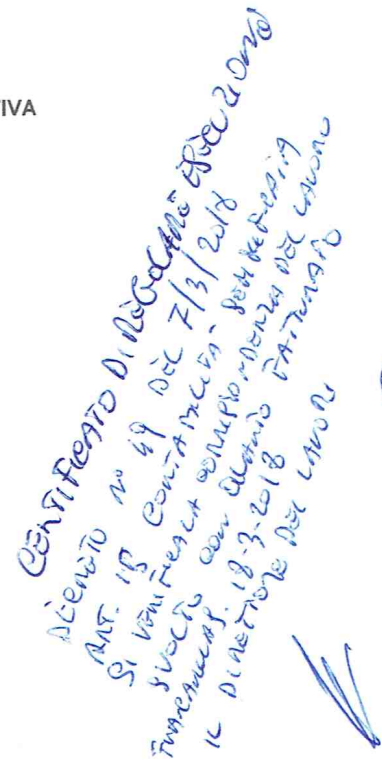 TIVA
CERTIFICATO DI REGOLARE ESECUZIONE
DECRETO N° 49 DEL 7/3/2018
ART. 15 CONTABILITÀ SEMPLIFICATA
SI VERIFICA LA CORRISPONDENZA DEL LAVORO
SVOLTO CON QUANTO FATTURATO
18-3-2018
IL DIRETTORE DEI LAVORI